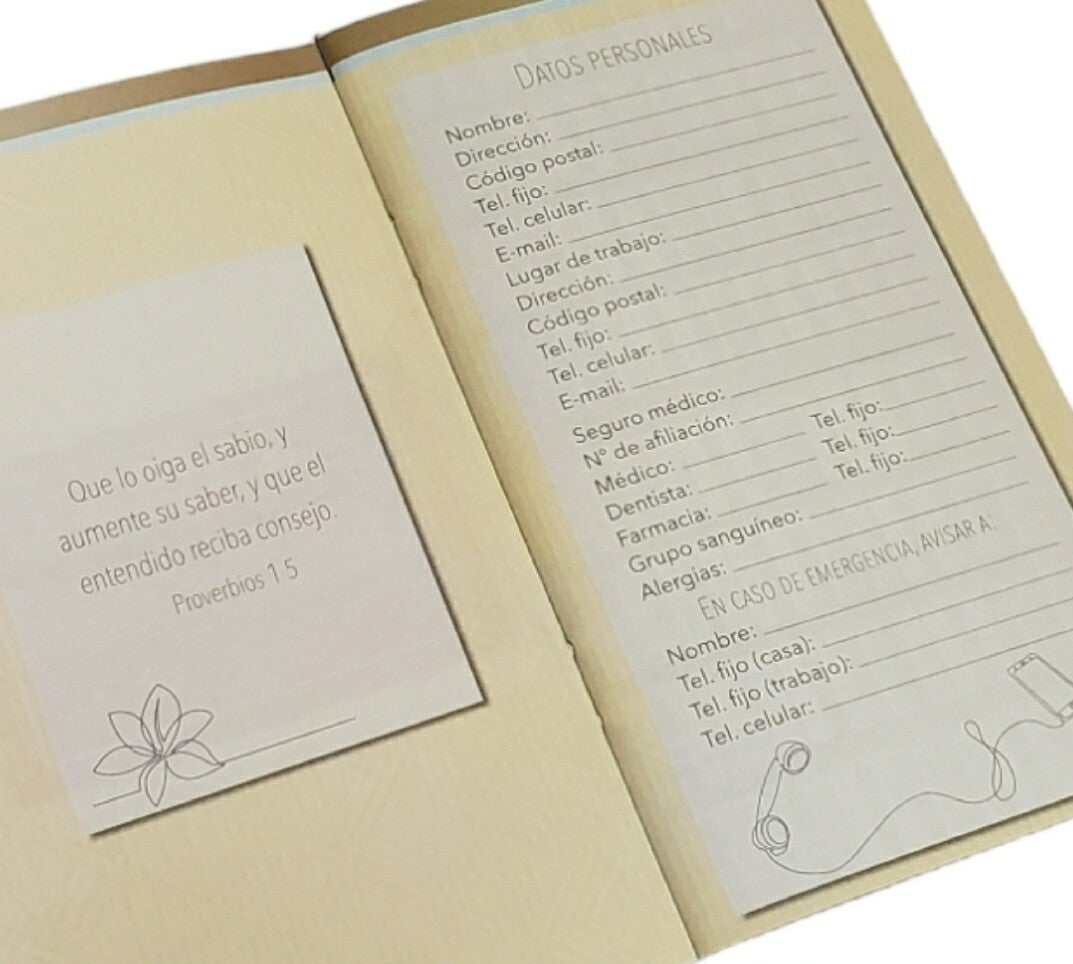 Que lo oiga el sabio, y
aumente su saber, y que el
entendido reciba consejo.
Proverbios 1 5
DATOS PERSONALES
Nombre:
Dirección:
Código postal:
Tel. fijo:
Tel. celular:
E-mail:
Lugar de trabajo:
Dirección:
Código postal:
Tel. fijo:
Tel. celular:
E-mail:
Seguro médico:
N° de afiliación:
Médico: Tel. fijo:
Dentista: Tel. fijo:
Farmacia: Tel. fijo:
Grupo sanguíneo:
Alergias:
EN CASO DE EMERGENCIA, AVISAR A:
Nombre:
Tel. fijo (casa):
Tel. fijo (trabajo):
Tel. celular: